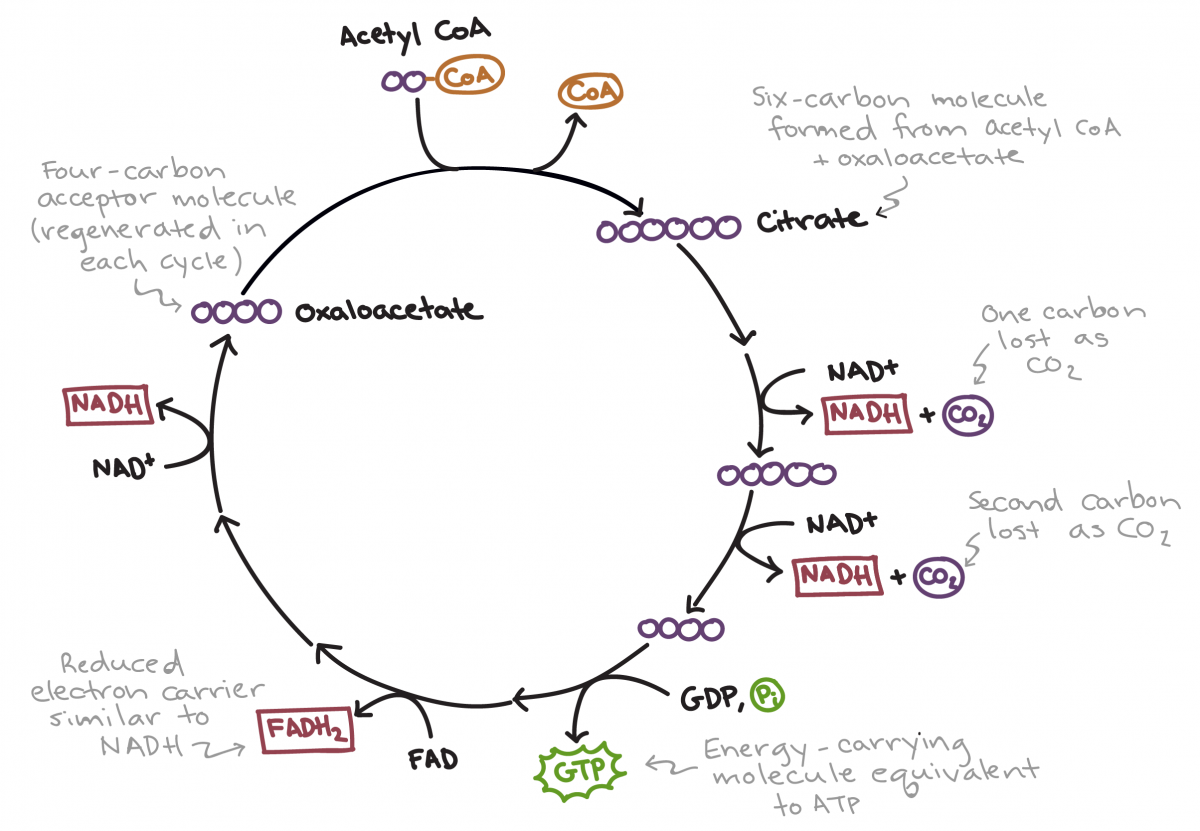 Acetyl CoA
CoA
CoA
Six-carbon molecule
formed from acetyl CoA
+ oxaloacetate
Four-carbon
acceptor molecule
(regenerated in
each cycle)
Citrate
Oxaloacetate
One carbon
lost as
CO2
NAD+
NADH + CO2
NADH
NAD+
Second carbon
lost as CO2
NAD+
NADH + CO2
Reduced
electron carrier
similar to
NADH
FADH2
FAD
GDP, Pi
GTP
Energy-carrying
molecule equivalent
to ATP